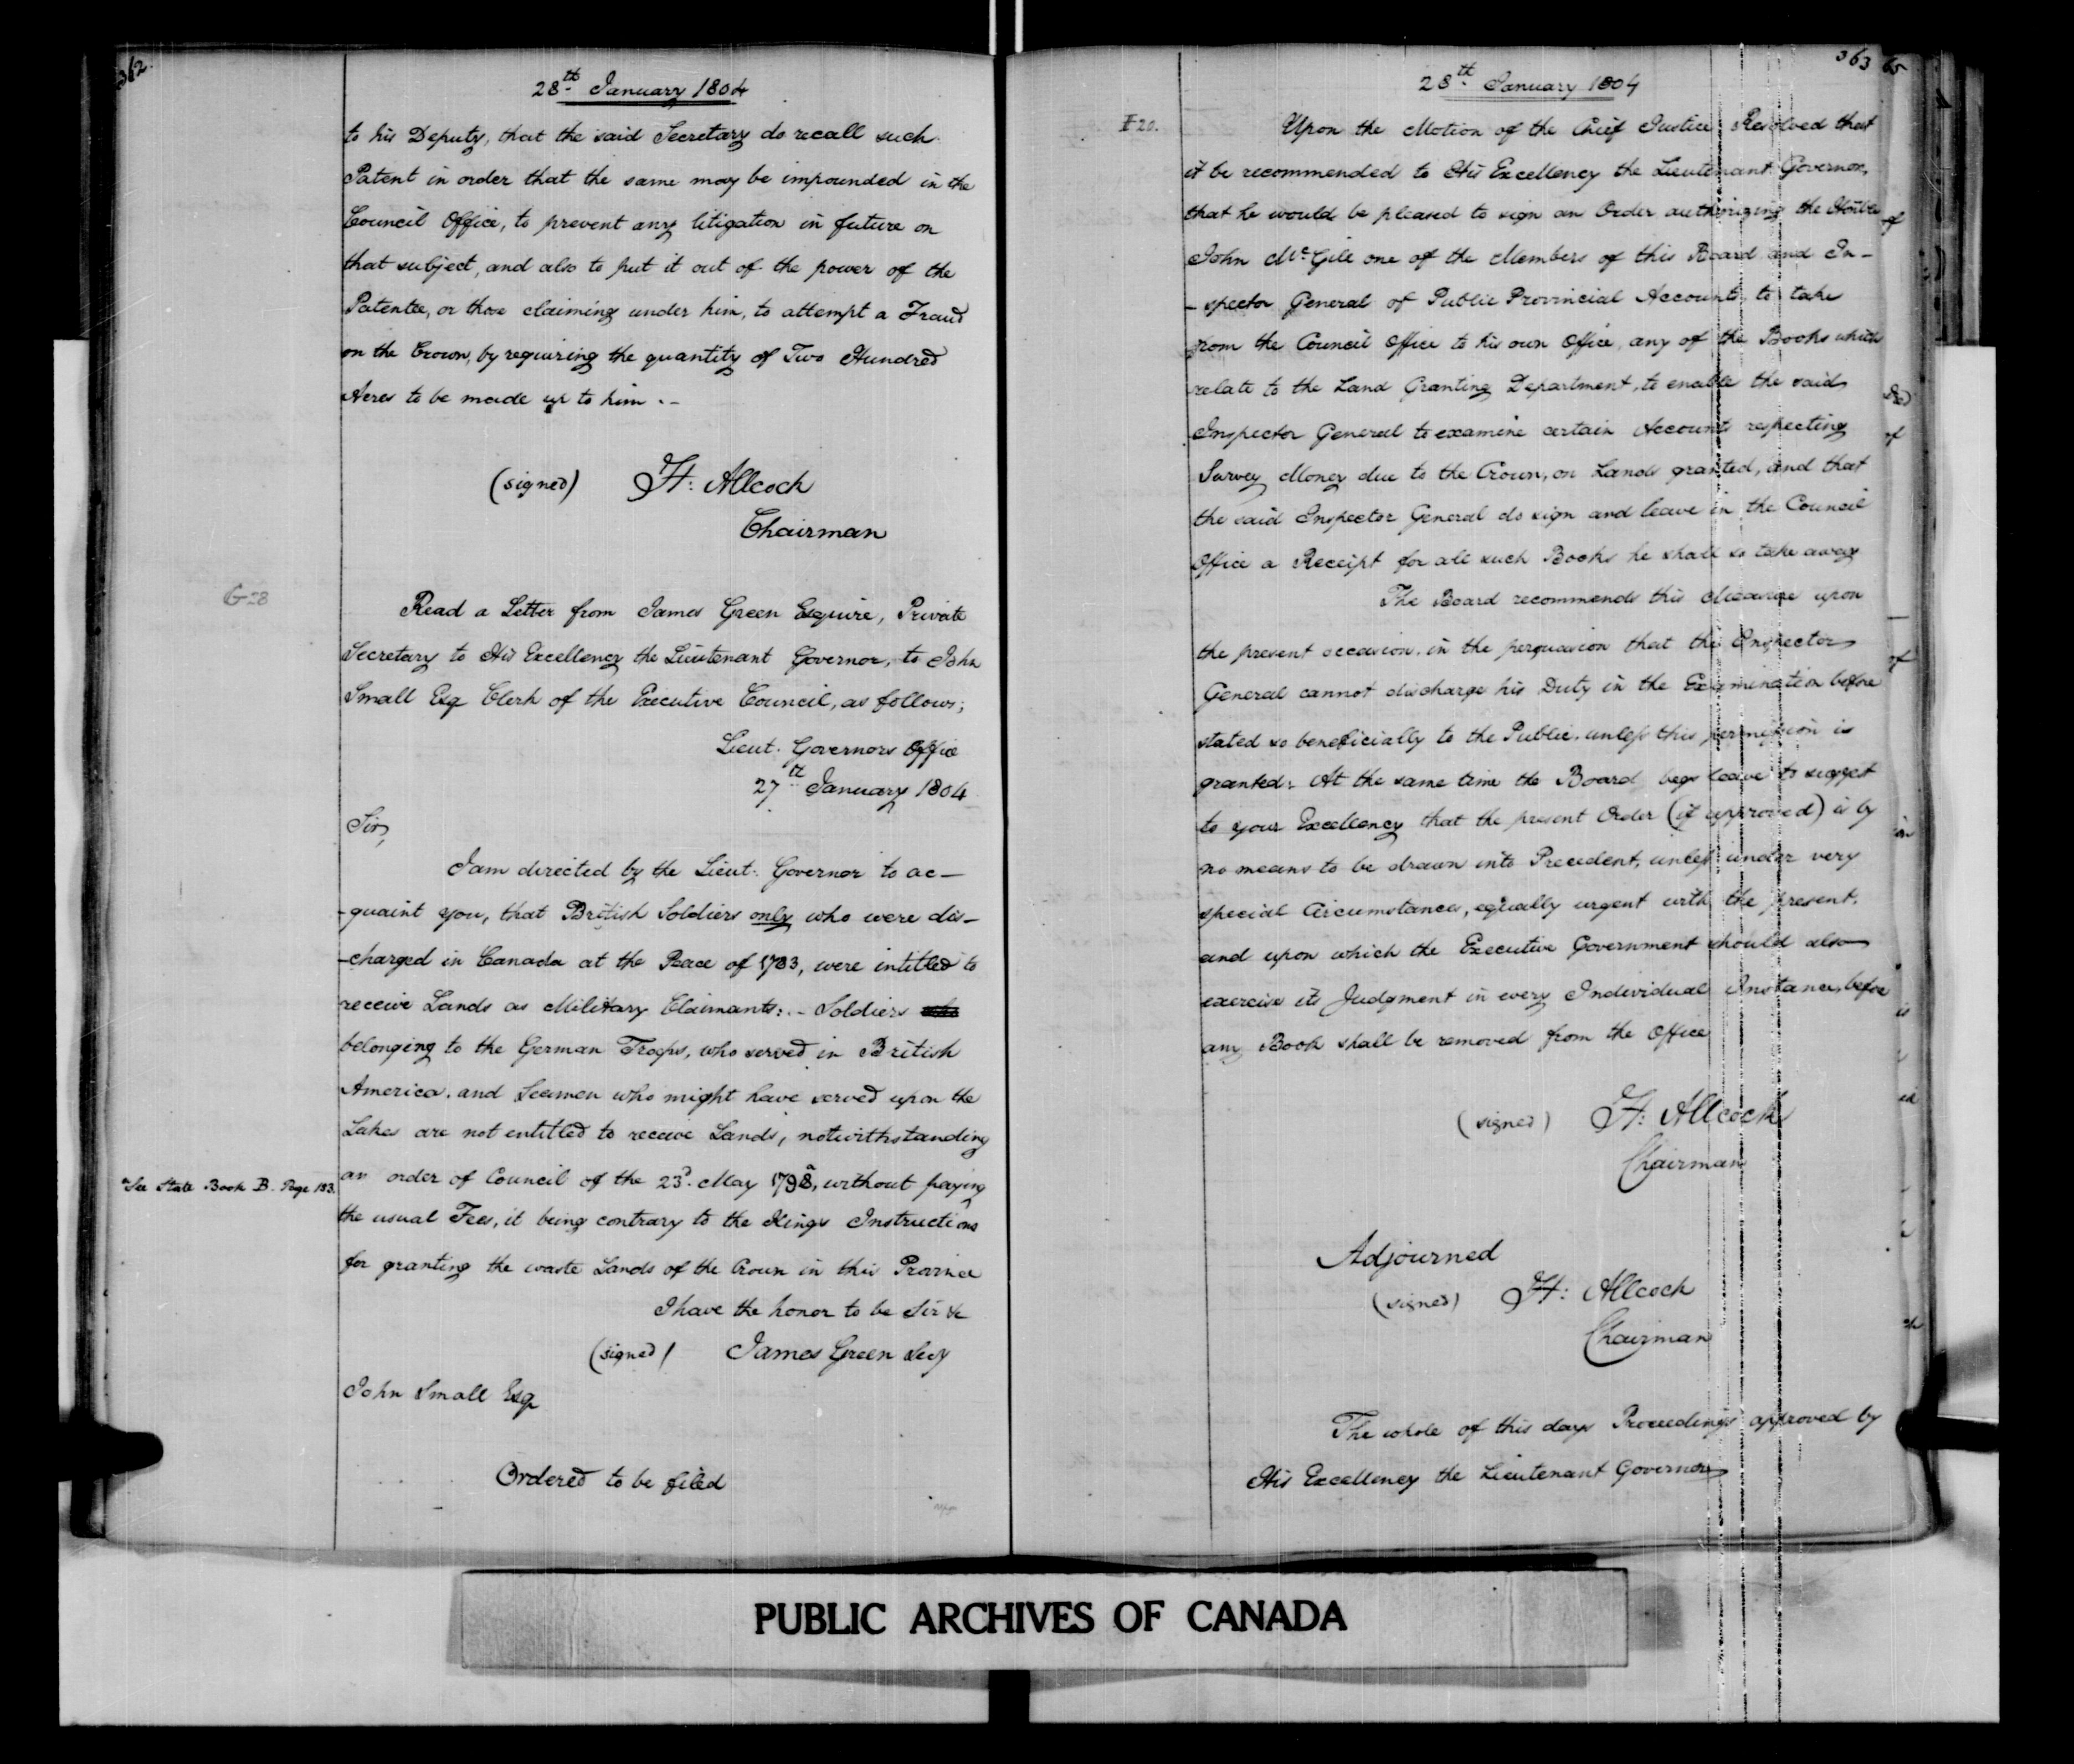 362.
28th January 1804
to his Deputy, that the said Secretary do recall such
Patent in order that the same may be impounded in the
Council Office, to prevent any litigation in future on
that subject, and also to put it out of the power of the
Patentee, or those claiming under him, to attempt a Fraud
on the Crown, by requiring the quantity of Two Hundred
Acres to be made up to him.-
(signed) H: Allcock
Chairman
G 28
Read a Letter from James Green Esquire, Private
Secretary to His Excellency the Lieutenant Governor, to John
Small Esq Clerk of the Executive Council, as follows;
Lieut. Governors Office
27th January 1804
Sir,
I am directed by the Lieut. Governor to ac-
-quaint you, that British Soldiers only who were dis-
-charged in Canada at the Peace of 1783, were intitled to
receive Lands as Military Claimants:.- Soldiers who
belonging to the German Troops, who served in British
America, and Seamen who might have served upon the
Lakes are not entitled to receive Lands, notwithstanding
a See State Book B. Page 183.
an order of Council of the 23d. May 1798,a without paying
the usual Fees, it being contrary to the Kings Instructions
for granting the waste Lands of the Crown in this Province
I have the honor to be Sir &c
(signed) James Green Secy
John Small Esq
Ordered to be filed
363 65
28th January 1804
F 20.
Upon the Motion of the Chief Justice Resolved that
it be recommended to His Excellency the Lieutenant Governor,
that he would be pleased to sign an Order authorizing the Honble
John McGill one of the Members of this Board and In-
-spector General of Public Provincial Accounts, to take
from the Council Office to his own Office, any of the Books which
relate to the Land Granting Department, to enable the said
Inspector General to examine certain Accounts respecting
Survey Money due to the Crown, on Lands granted, and that
the said Inspector General do sign and leave in the Council
Office a Receipt for all such Books he shall so take away
The Board recommends this Measure upon
the present occasion, in the persuasion that the Inspector
General cannot discharge his Duty in the Examination before
stated so beneficially to the Public, unless this permission is
granted: At the same time the Board begs leave to suggest
to your Excellency that the present Order (if approved) is by
no means to be drawn into Precedent, unless under very
special Circumstances, equally urgent with the present,
and upon which the Executive Government should also
exercise its Judgment in every Individual Instance, before
any Book shall be removed from the Office
(signed) H: Allcock
Chairman
Adjourned
(signed) H: Allcock
Chairman
The whole of this days Proceedings approved by
His Excellency the Lieutenant Governor
PUBLIC ARCHIVES OF CANADA